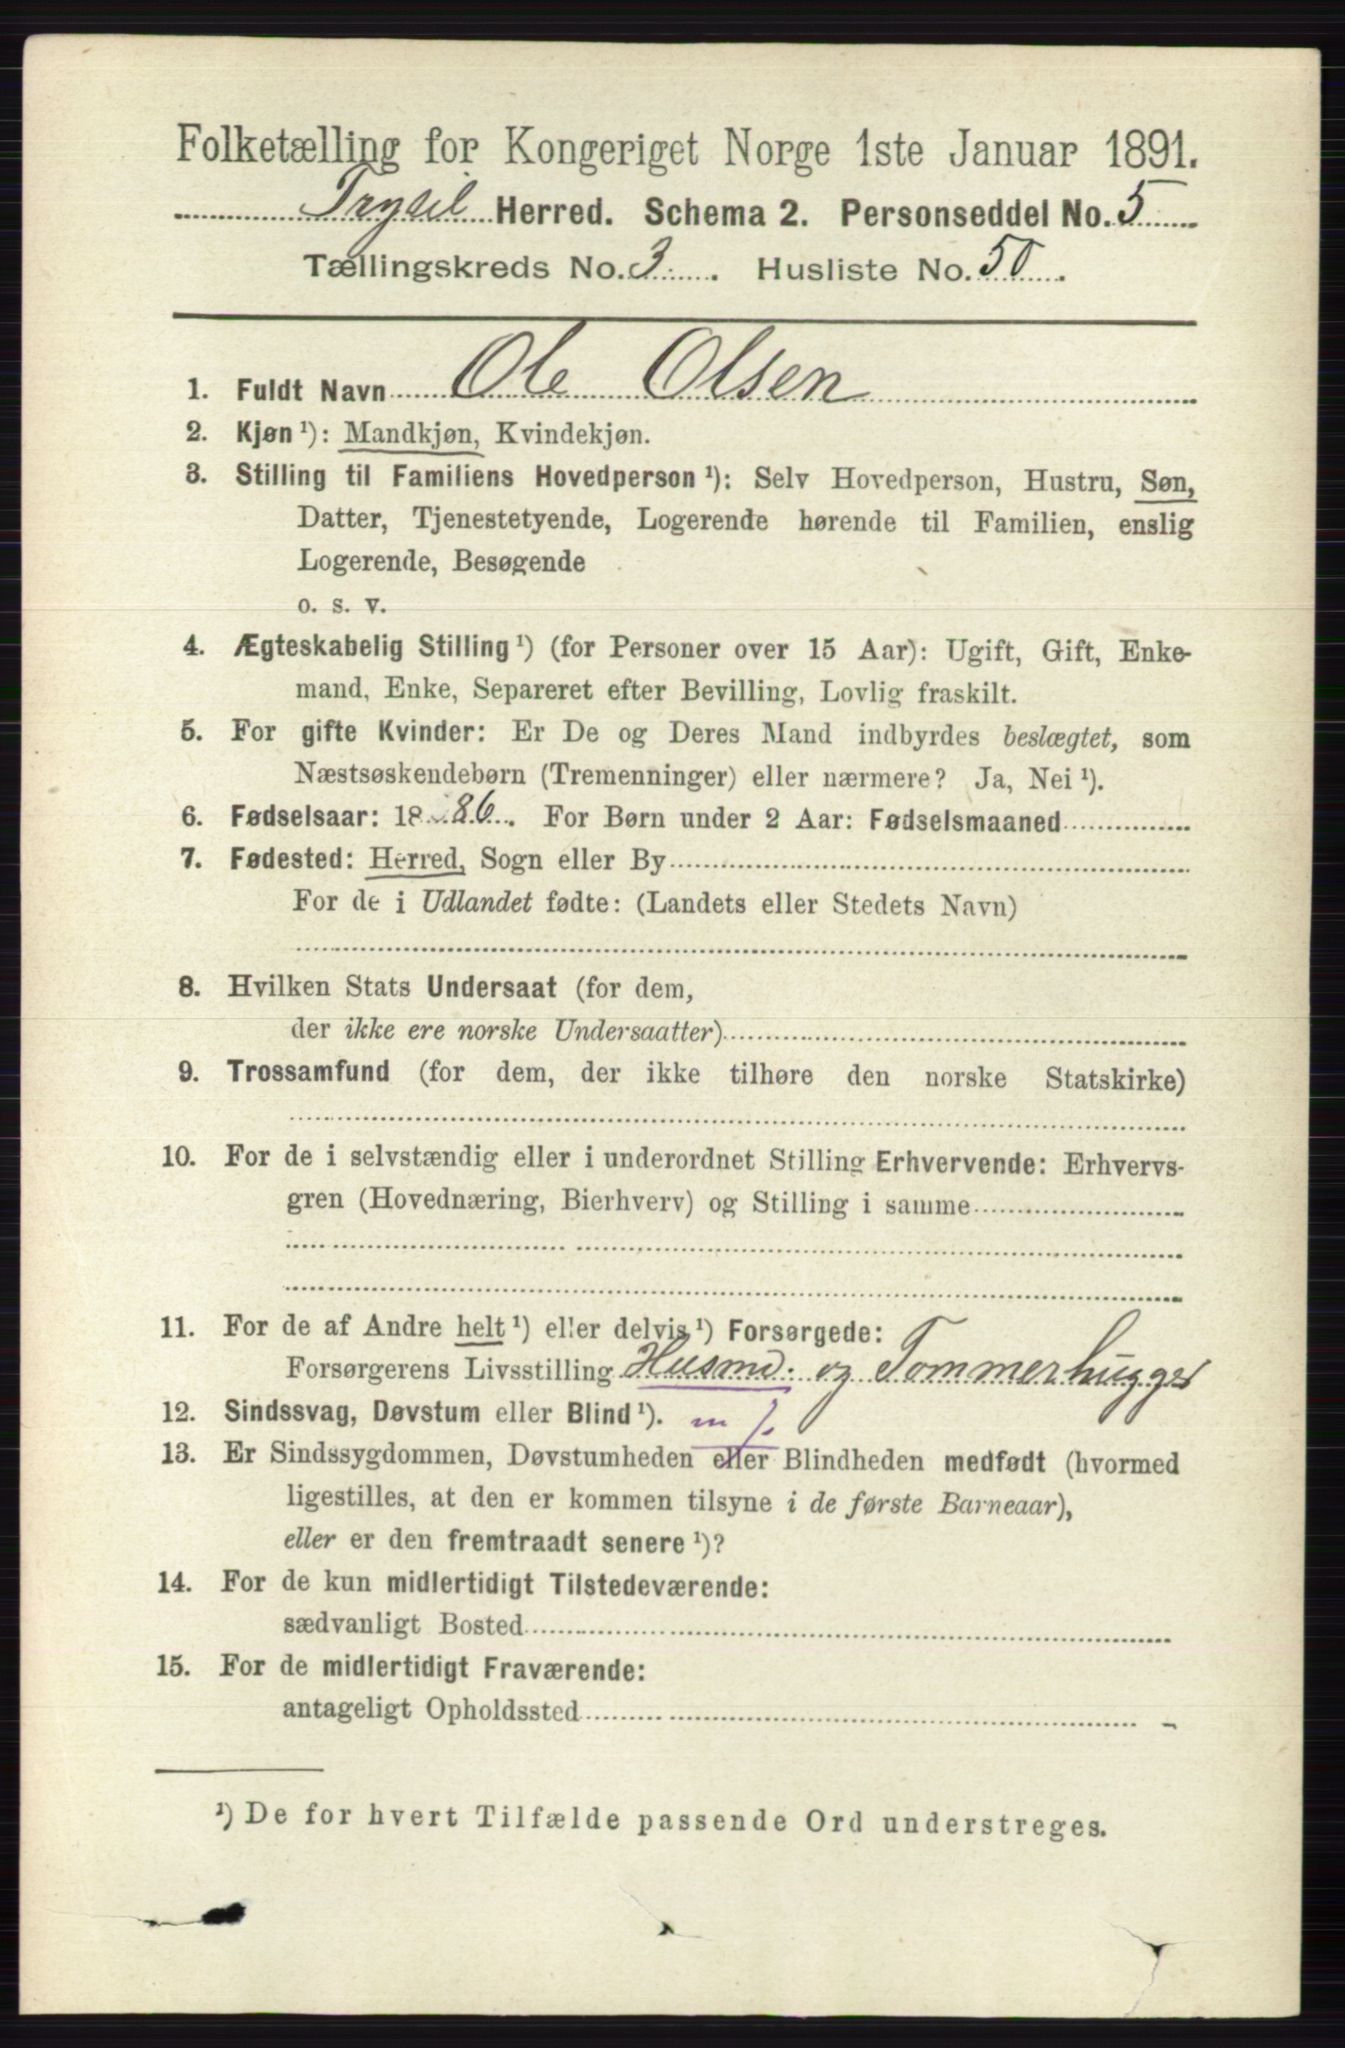 Folketælling for Kongeriget Norge 1ste Januar 1891.
Trysil Herred. Schema 2. Personseddel No. 5
Tællingskreds No. 3. Husliste No. 50.
1. Fuldt Navn Ole Olsen
2. Kjøn ¹): Mandkjøn, Kvindekjøn.
3. Stilling til Familiens Hovedperson ¹): Selv Hovedperson, Hustru, Søn,
Datter, Tjenestetyende, Logerende hørende til Familien, enslig
Logerende, Besøgende
o. s. v.
4. Ægteskabelig Stilling ¹) (for Personer over 15 Aar): Ugift, Gift, Enke-
mand, Enke, Separeret efter Bevilling, Lovlig fraskilt.
5. For gifte Kvinder: Er De og Deres Mand indbyrdes beslægtet, som
Næstsøskendebørn (Tremenninger) eller nærmere? Ja, Nei ¹).
6. Fødselsaar: 1886. For Børn under 2 Aar: Fødselsmaaned
7. Fødested: Herred, Sogn eller By
For de i Udlandet fødte: (Landets eller Stedets Navn)
8. Hvilken Stats Undersaat (for dem,
der ikke ere norske Undersaatter)
9. Trossamfund (for dem, der ikke tilhøre den norske Statskirke)
10. For de i selvstændig eller i underordnet Stilling Erhvervende: Erhvervs-
gren (Hovednæring, Bierhverv) og Stilling i samme
11. For de af Andre helt ¹) eller delvis ¹) Forsørgede:
Forsørgerens Livsstilling Husmd. og Tømmerhugger
12. Sindssvag, Døvstum eller Blind ¹). m
13. Er Sindssygdommen, Døvstumheden eller Blindheden medfødt (hvormed
ligestilles, at den er kommen tilsyne i de første Barneaar),
eller er den fremtraadt senere ¹)?
14. For de kun midlertidigt Tilstedeværende:
sædvanligt Bosted
15. For de midlertidigt Fraværende:
antageligt Opholdssted
¹) De for hvert Tilfælde passende Ord understreges.